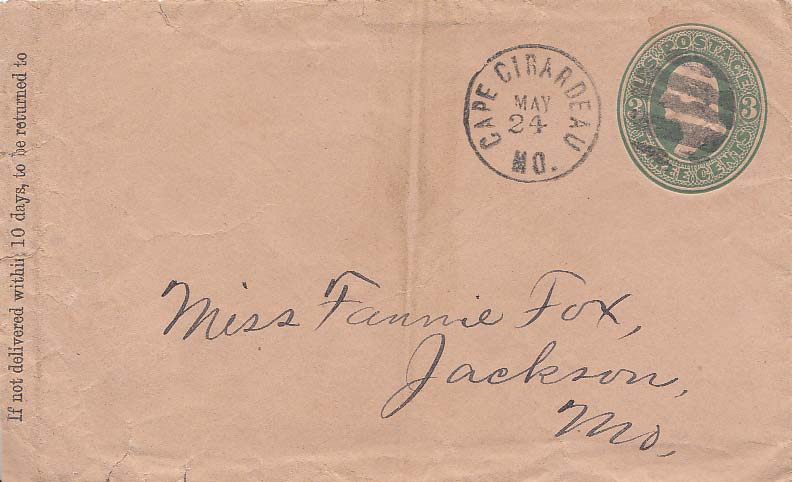 If not delivered within 10 days, to be returned to
CAPE GIRARDEAU
MAY
24
MO.
U.S. POSTAGE
3 3
THREE CENTS
Miss Fannie Fox,
Jackson,
Mo.